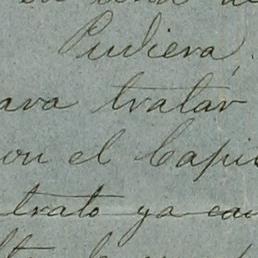 Pudiera,
ara tratar
on el Capi
trato ya ca